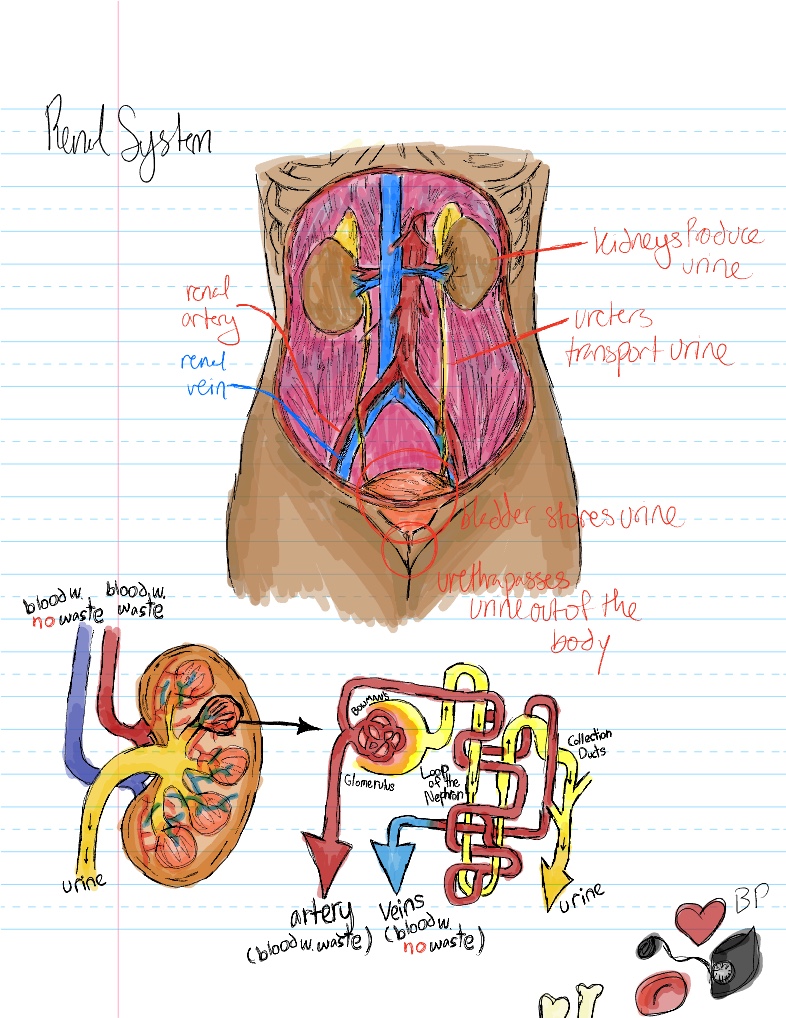 Renal System
kidneys Produce
urine
renal
artery
ureters
transport urine
renal
vein
bladder stores urine
urethra passes
urine out of the
body
blood w.
no waste
blood w.
waste
urine
BOWMAN'S
Glomerulus
Loop
of the
Nephron
Collection
Ducts
urine
artery
(blood w. waste)
veins
(blood w.
no waste)
BP